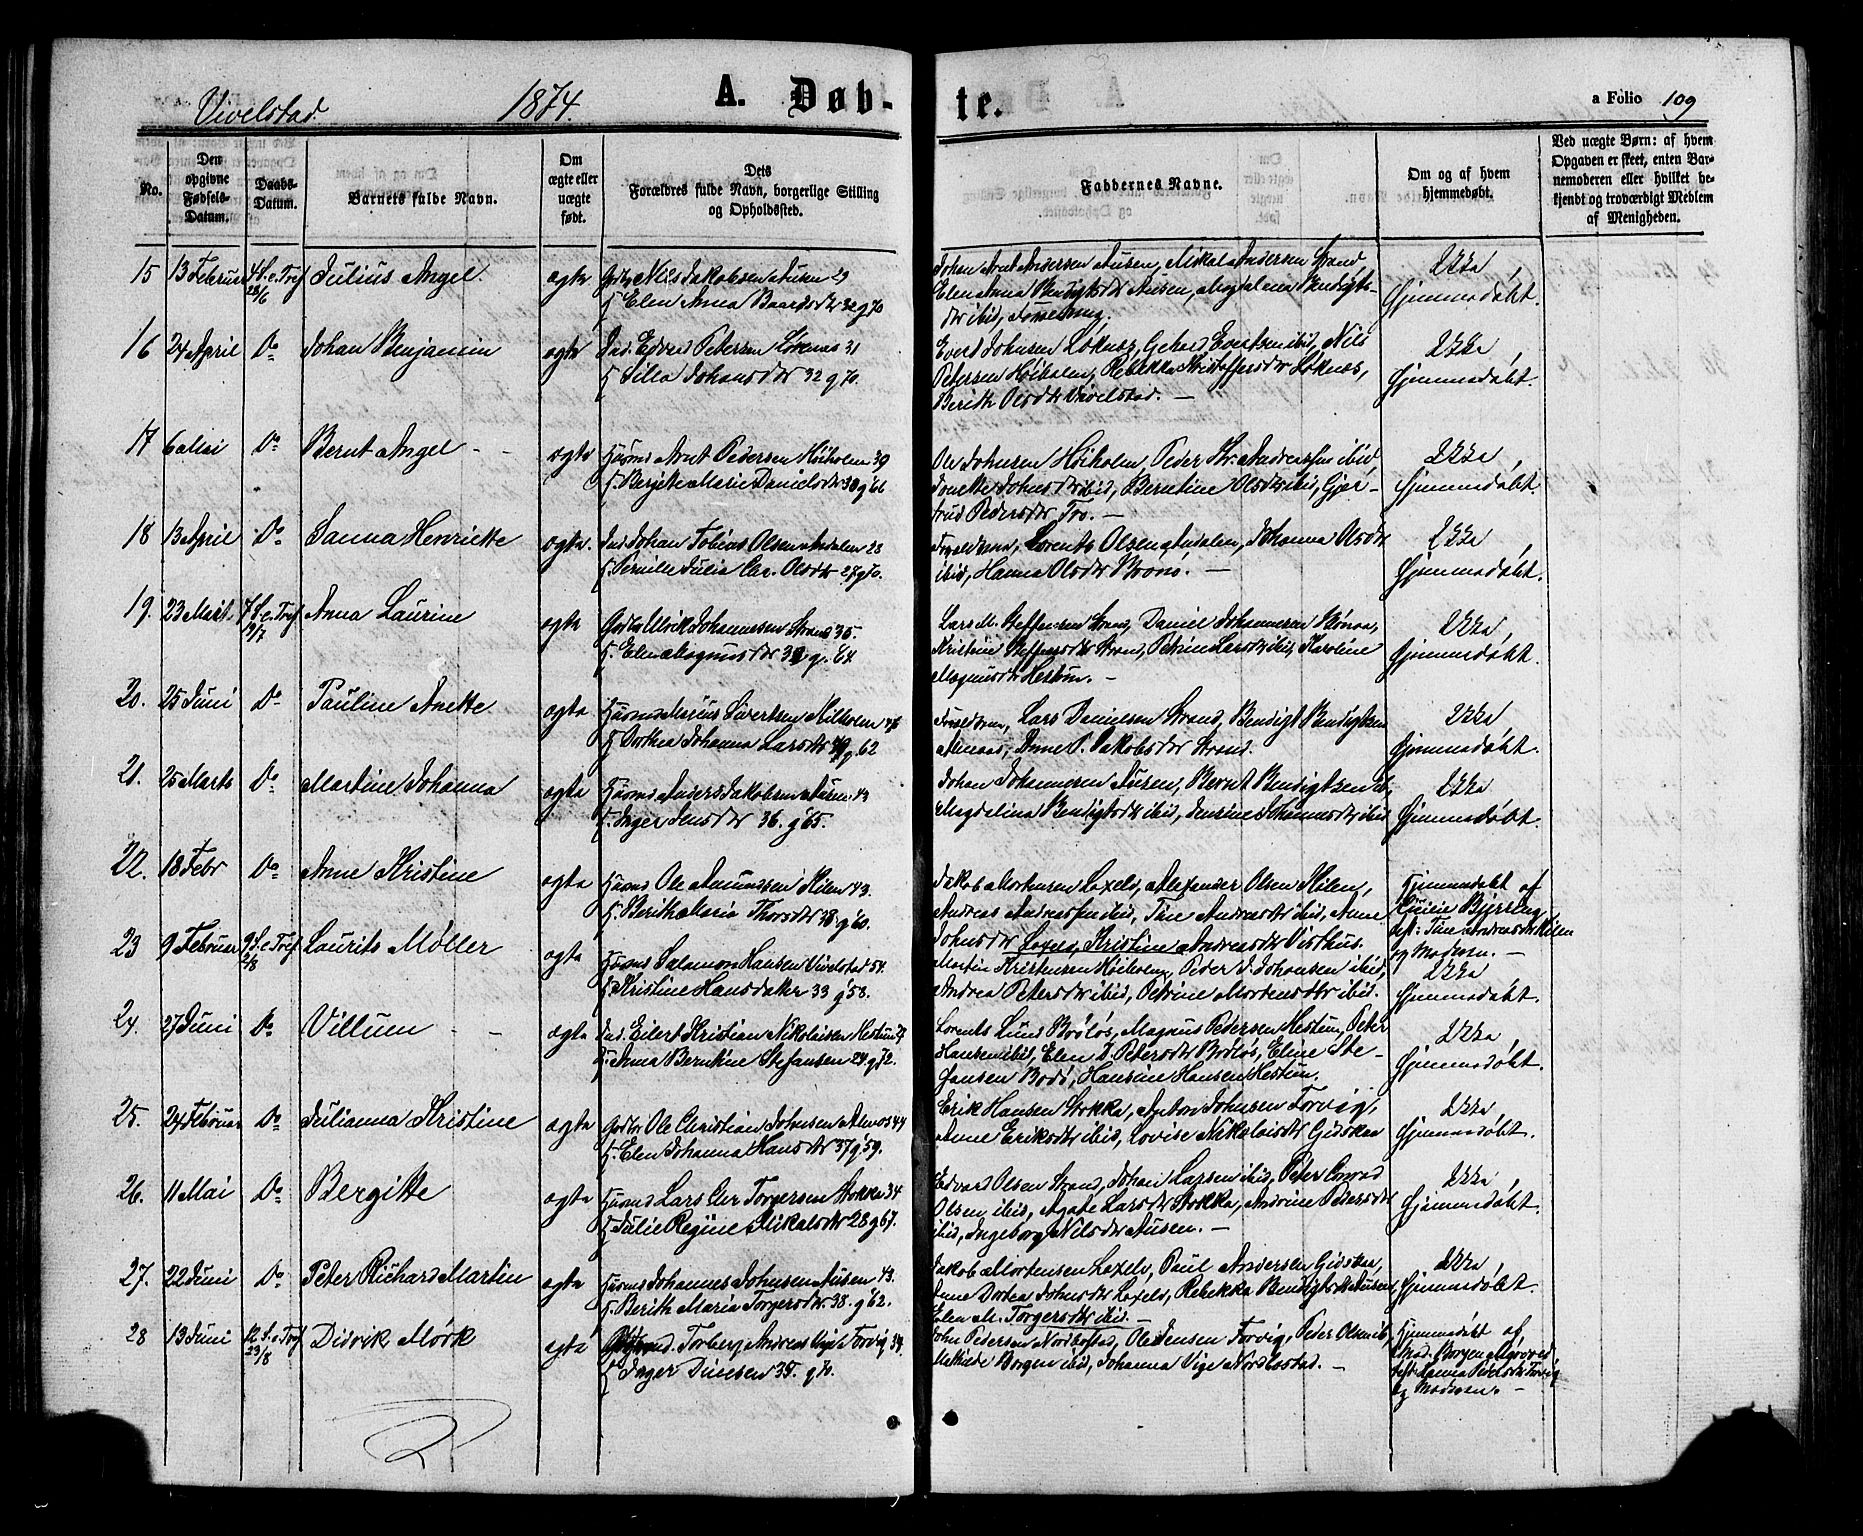 Vivelstad. 1874. A. Døb- te. a Folio 109
No.
Den opgivne Fødsels-Datum.
Daabs-Datum.
Barnets fulde Navn.
Om ægte eller uægte født.
Dets Forældres fulde Navn, borgerlige Stilling og Opholdssted.
Faddernes Navne.
Om og af hvem hjemmedøbt.
Ved uægte Børn: af hvem Opgaven er skeet, enten Barnemoderen eller hvilket bekjendt og troværdigt Medlem af Menigheden.
15 13 Februar 4 S. e. Tref 28/6 Julius Angel. ægte Nils Jakobsen Ausen 29
Elen Anna Baardsdtr 32 g 70
Johan Arnt Andersen Ausen, Mikal Andersen Strand
Elen Anna Bendigtsdtr Ausen, Magdalena Bendigts-
dtr ibid,
Hjemmedøbt.
16 24 April Do Johan Benjamin ægte Ind. Edvard Petersen Løknæs 31
H. Silla Johansdtr 32 g 70.
Evert Johnsen Løknæs, Gehard Evertsen ibid, Nils
Petersen Høiholm, Rebekka Kristoffersdtr Løknæs,
Berith Olsdtr Vivelstad. —
Hjemmedøbt.
17 6 Mai Do Bernt Angel - - ægte Husmd Arnt Pedersen Høiholm 39
H. Bergitte Marie Danielsdtr 30 g 66
Ole Johnsen Høiholm, Peder Chr. Andreassen ibid
Jonette Johnsdtr ibid, Berntine Olsdtr ibid, Gjer-
trud Pedersdtr Tro. —
Hjemmedøbt.
18 13 April Do Sanna Henriette ægte. Ind. Johan Tobias Olsen Andalen 28
H. Pernille Julia Chr. Olsdtr 27 g 70.
Lorents Olsen Andalen, Johanna Olsdtr
ibid, Hanna Olsdtr Brønø. —
Hjemmedøbt.
19. 23 Marts. 7 S. e. Tref 19/7 Anna Laurine ægte Ulrik Johannesen Strand 35.
H. Elen Magnusdtr 32 g. 64.
Lars M. Steffensen Strand, Daniel Johannesen Bønaa,
Kristine Steffensdtr Strand, Petrine Larsdtr ibid, Karoline
Magnusdtr Hestun. —
Hjemmedøbt.
20. 25 Juni Do Pauline Anette ægte Husmd Marius Sivertsen Hilholm 46
H. Dorthea Johanna Larsdtr 49 g 62
Lars Danielsen Strand, Bendigt Bendigtsen
Alenaas, Anne P. Jakobsdtr Strand.
Hjemmedøbt.
21. 25 Marts Do Martine Johanna ægte Husmd Anders Jakobsen Ausen 43
H. Inger Jensdtr 36. g 65.
Johan Johannesen Ausen, Bernt Bendigtsen ib,
Magdalina Bendigtsdtr ibid, Jensine Johannesdtr ibid
Hjemmedøbt.
22. 18 Febr Do Anne Kristine ægte Husmd Ole Amundsen Hilen 43.
H. Berith Maria Thorsdtr 38. g 60.
Jakob Mortensen Laxelv, Alexander Olsen Hilen,
Andreas Andreassen ibid, Tine Andreasdtr ibid, Anne
Johnsdtr Laxelv, Kristine Andreasdtr Visthus.
Hjemmedøbt af
Emilie Bjerring
Tine Andreasdtr Hilen
og Moderen. —
23 9 Februar 9 S. e. Tref 2/8 Laurits Møller ægte Husmd Salamon Hansen Vivelstad 54.
H. Kristine Hansdatter 33 g 58.
Martin Kristensen Høiholm, Peder J. Johansen ibid,
Andrea Petersdtr ibid, Petrine Mortensdtr ibid.
Hjemmedøbt.
24. 27 Juni Do Villum - - ægte Ind. Eilert Kristian Nikolaisen Hestun 29
H. Anna Berntine Stefansen 24. g 72.
Lorents Lund Brøløs, Magnus Pedersen Hestun, Peter
Hansen ibid, Elen D. Petersdtr Brøløs, Eline Ste-
fansen Bodø, Hansine Hansen Hestun.
Hjemmedøbt.
25. 24 Februar Do Julianna Kristine ægte Ole Christian Johnsen Alenaas 44
H. Elen Johanna Hansdtr 37 g 59.
Erik Hansen Stokka, Anton Johnsen Forvig,
Anne Eriksdtr ibid, Lovise Nikolaisdtr Gidskaa
Hjemmedøbt.
26. 11 Mai Do Bergitte ægte Husmd Lars Chr Torgersen Stokka 34
H. Julie Regine Mikalsdtr 28 g 67.
Edvard Olsen Strand, Johan Larsen ibid, Peter Conrad
Olsen ibid, Agate Larsdtr Stokka, Andrine Pedersdtr
ibid, Ingeborg Nilsdtr Ausen. —
Hjemmedøbt.
27. 22 Juni Do Peter Richard Martin ægte Husmd Johannes Johnsen Ausen 43.
H. Berith Maria Torgersdtr 38. g 62.
Jakob Mortensen Laxelv, Paul Andersen Gidskaa,
Anne Dortea Johnsdtr Laxelv, Rebekka Bendigtsdtr Ausen,
Elen M. Torgersdtr ibid.
Hjemmedøbt.
28 13 Juni 12 S. e. Tref 23/8 Didrik Mørk ægte Torberg Andreas Vigt Forvig 34.
H. Inger Dinesen 35. g 70.
John Pedersen Nordbostad, Ole Jensen Forvig, Peder Olsen ib,
Mathilde Borgen ibid, Johanna Vige Nordbostad. —
Hjemmedøbt af
Mad. Borgen
Hanna Pedersdtr Forvig
og Moderen. —